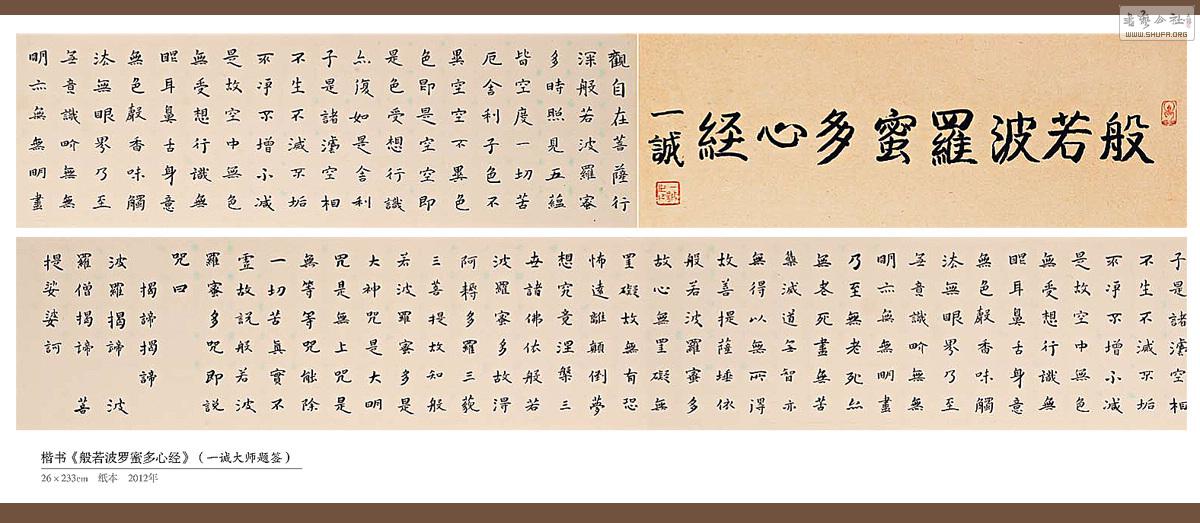 般若波羅蜜多心経
一誠
觀自在菩薩行
深般若波羅蜜
多時照見五蘊
皆空度一切苦
厄舍利子色不
異空空不異色
色即是空空即
是色受想行識
亦復如是舍利
子是諸灋空相
不生不滅不垢
不淨不增不減
是故空中無色
無受想行識無
眼耳鼻舌身意
無色聲香味觸
法無眼界乃至
無意識界無無
明亦無無明盡
子是諸灋空相
不生不滅不垢
不淨不增不減
是故空中無色
無受想行識無
眼耳鼻舌身意
無色聲香味觸
法無眼界乃至
無意識界無無
明亦無無明盡
乃至無老死亦
無老死盡無苦
集滅道無智亦
無得以無所得
故菩提薩埵依
般若波羅蜜多
故心無罣礙無
罣礙故無有恐
怖遠離顛倒夢
想究竟涅槃三
世諸佛依般若
波羅蜜多故得
阿耨多羅三藐
三菩提故知般
若波羅蜜多是
大神咒是大明
咒是無上咒是
無等等咒能除
一切苦真實不
虛故說般若波
羅蜜多咒即說
咒曰
揭諦揭諦
波羅揭諦 波
羅僧揭諦 菩
提娑婆訶
楷书《般若波罗蜜多心经》(一诚大师题签)
26×233cm 纸本 2012年
书艺公社
WWW.SHUFA.ORG